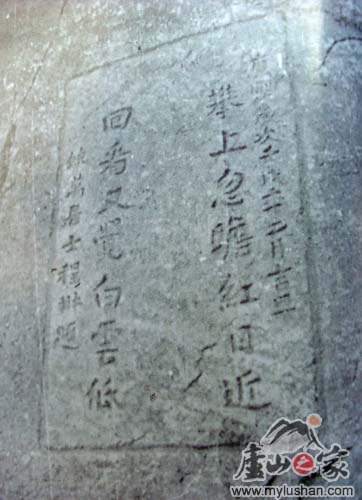 歲次壬戌二月
上忽瞻紅日近
回看又覺白雲低
居士程題
廬山之家
www.mylushan.com